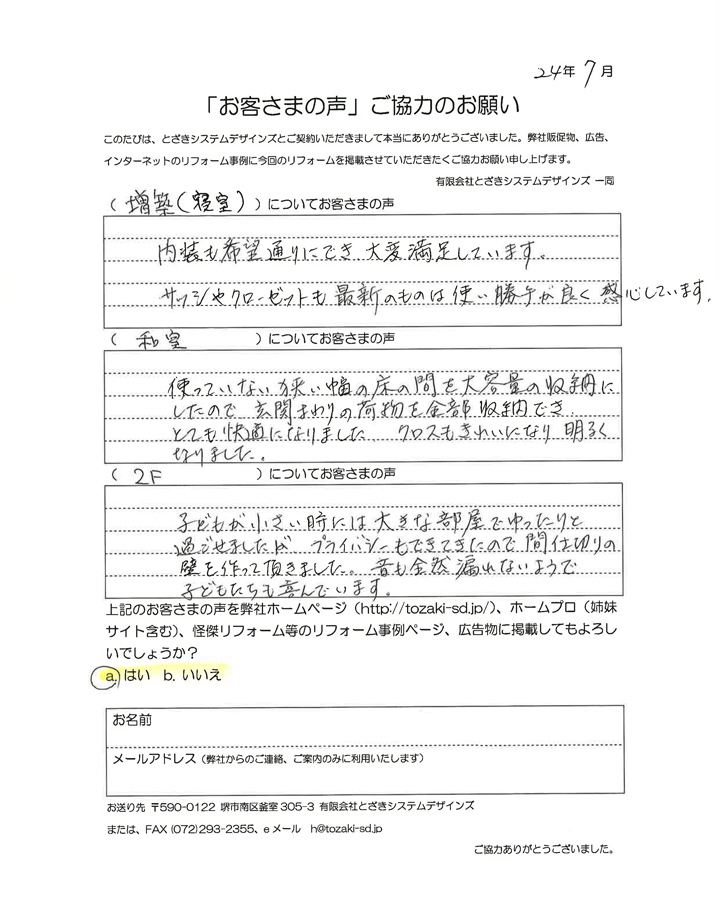 24年7月
「お客さまの声」ご協力のお願い
このたびは、とざきシステムデザインズとご契約いただきまして本当にありがとうございました。弊社販促物、広告、
インターネットのリフォーム事例に今回のリフォームを掲載させていただきたくご協力お願い申し上げます。
有限会社とざきシステムデザインズ 一同
( 増築(寝室) )についてお客さまの声
内装も希望通りにでき 大変満足しています。
サッシやクローゼットも最新のものは使い勝手が良く感心しています。
( 和室 )についてお客さまの声
使っていない狭い幅の床の間を大容量の収納に
したので 玄関まわりの荷物を全部収納でき
とても快適になりました クロスもきれいになり 明るく
なりました。
( 2F )についてお客さまの声
子どもが小さい時には大きな部屋でゆったりと
過ごせましたが プライバシーもでてきたので間仕切りの
壁を作って頂きました。音も全然漏れないようで
子どもたちも喜んでいます。
上記のお客さまの声を弊社ホームページ(http://tozaki-sd.jp/)、ホームプロ(姉妹
サイト含む)、怪傑リフォーム等のリフォーム事例ページ、広告物に掲載してもよろし
いでしょうか?
a. はい b. いいえ
お名前
メールアドレス(弊社からのご連絡、ご案内のみに利用いたします)
お送り先 〒590-0122 堺市南区釜室 305-3 有限会社とざきシステムデザインズ
または、FAX (072)293-2355、e メール h@tozaki-sd.jp
ご協力ありがとうございました。